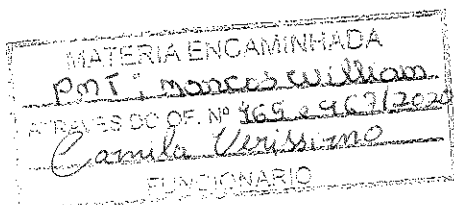 MATERIA ENCAMINHADA
PMT; Marcos William
ATRAVES DO OF. Nº 965 e 967/2020
Camila Verissimo
FUNCIONARIO